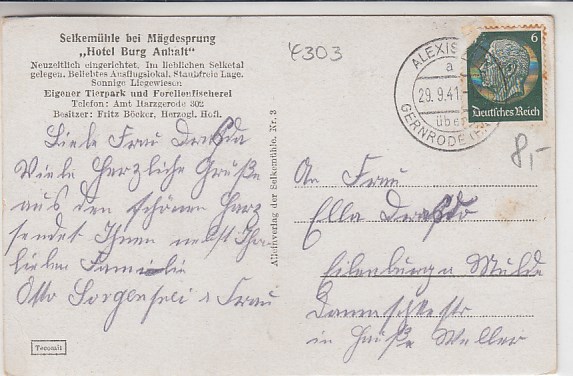 Selkemühle bei Mägdesprung
„Hotel Burg Anhalt"
Neuzeitlich eingerichtet, Im lieblichen Selketal
gelegen. Beliebtes Ausflugslokal. Staubfreie Lage.
Sonnige Liegewiesen
Eigener Tierpark und Forellenfischerei
Telefon: Amt Harzgerode 302
Besitzer: Fritz Böcker, Herzogl. Hofl.
4303
ALEXIS
a
29.9.41
übe
GERNRODE
6
Deutsches Reich
8,-
Liebe Frau Drasda
Viele herzliche Grüße
aus den schönen Harz
sendet Ihnen nebst Ihr
lieben Familie
Otto & Frau
Alleinverlag der Selkemühle. Nr. 3
An Frau
Ella Drasdo
Eilenburg a Mulde
in Hauße Weller
Tecosit